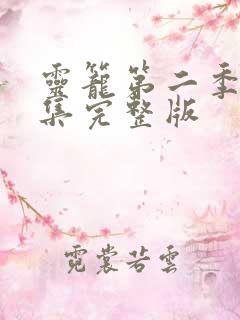 靈籠第二季
集完整版
霓裳若雲